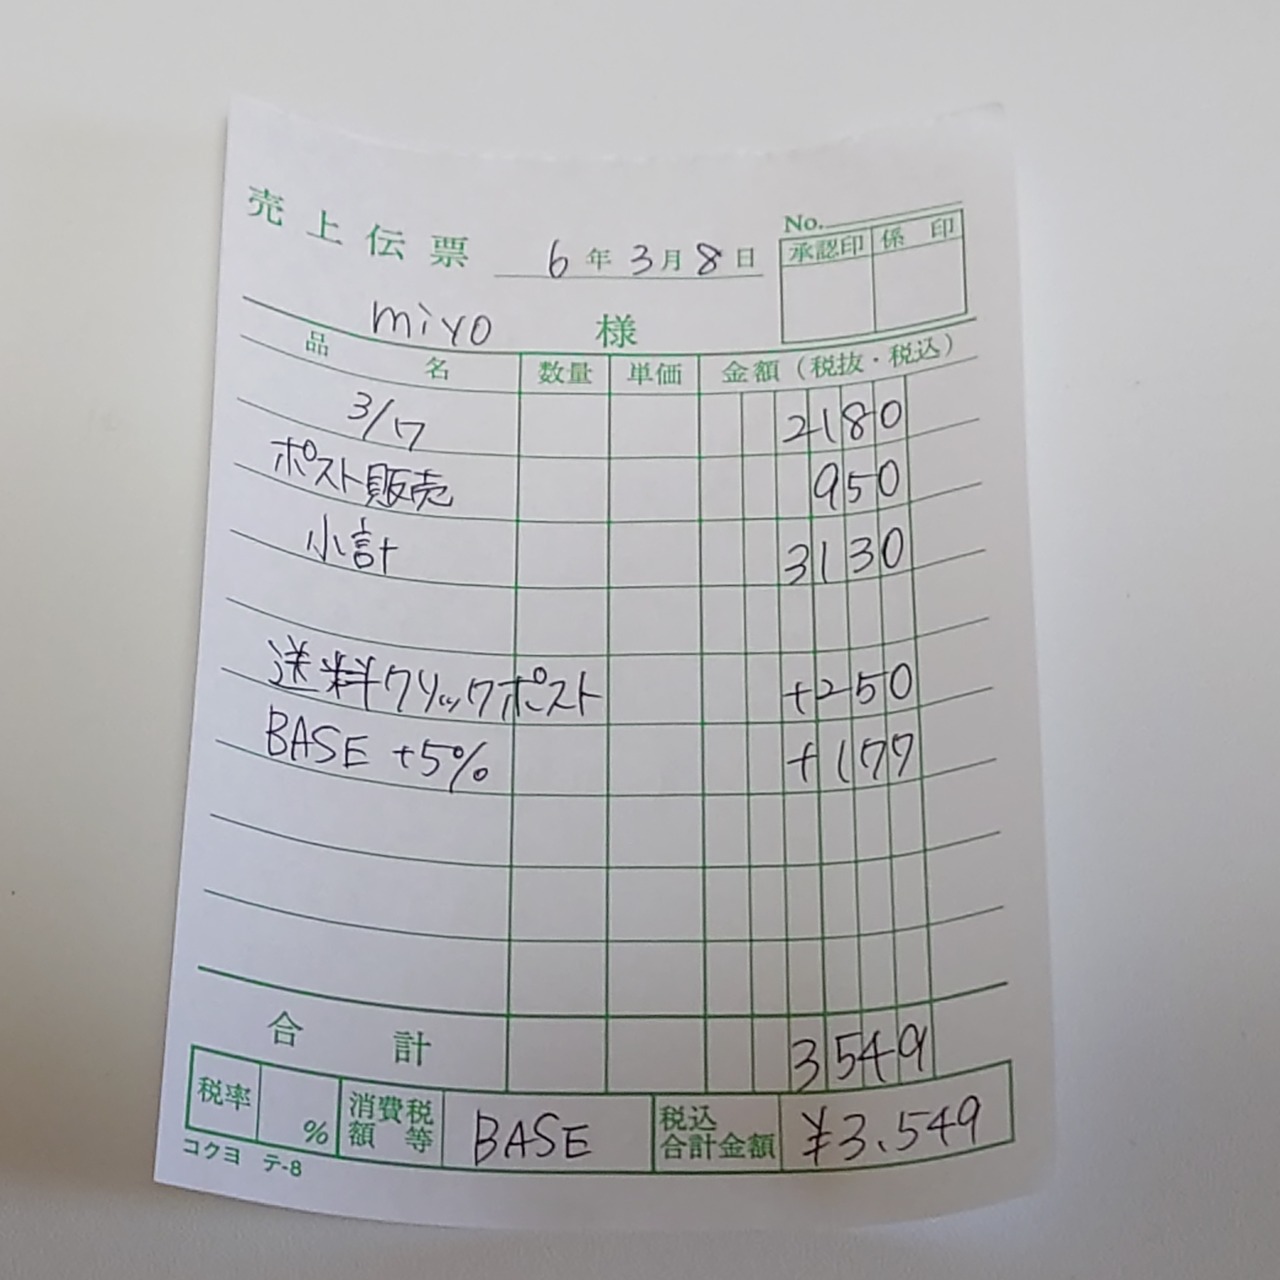 売上伝票 6年3月8日 No.
承認印 係印
miyo 様
品名 数量 単価 金額(税抜・税込)
3/17 2180
ポスト販売 950
小計 3130
送料クリックポスト +250
BASE +5% +177
合計 3549
税率 % 消費税額等 BASE 税込合計金額 ¥3.549
コクヨ テ-8